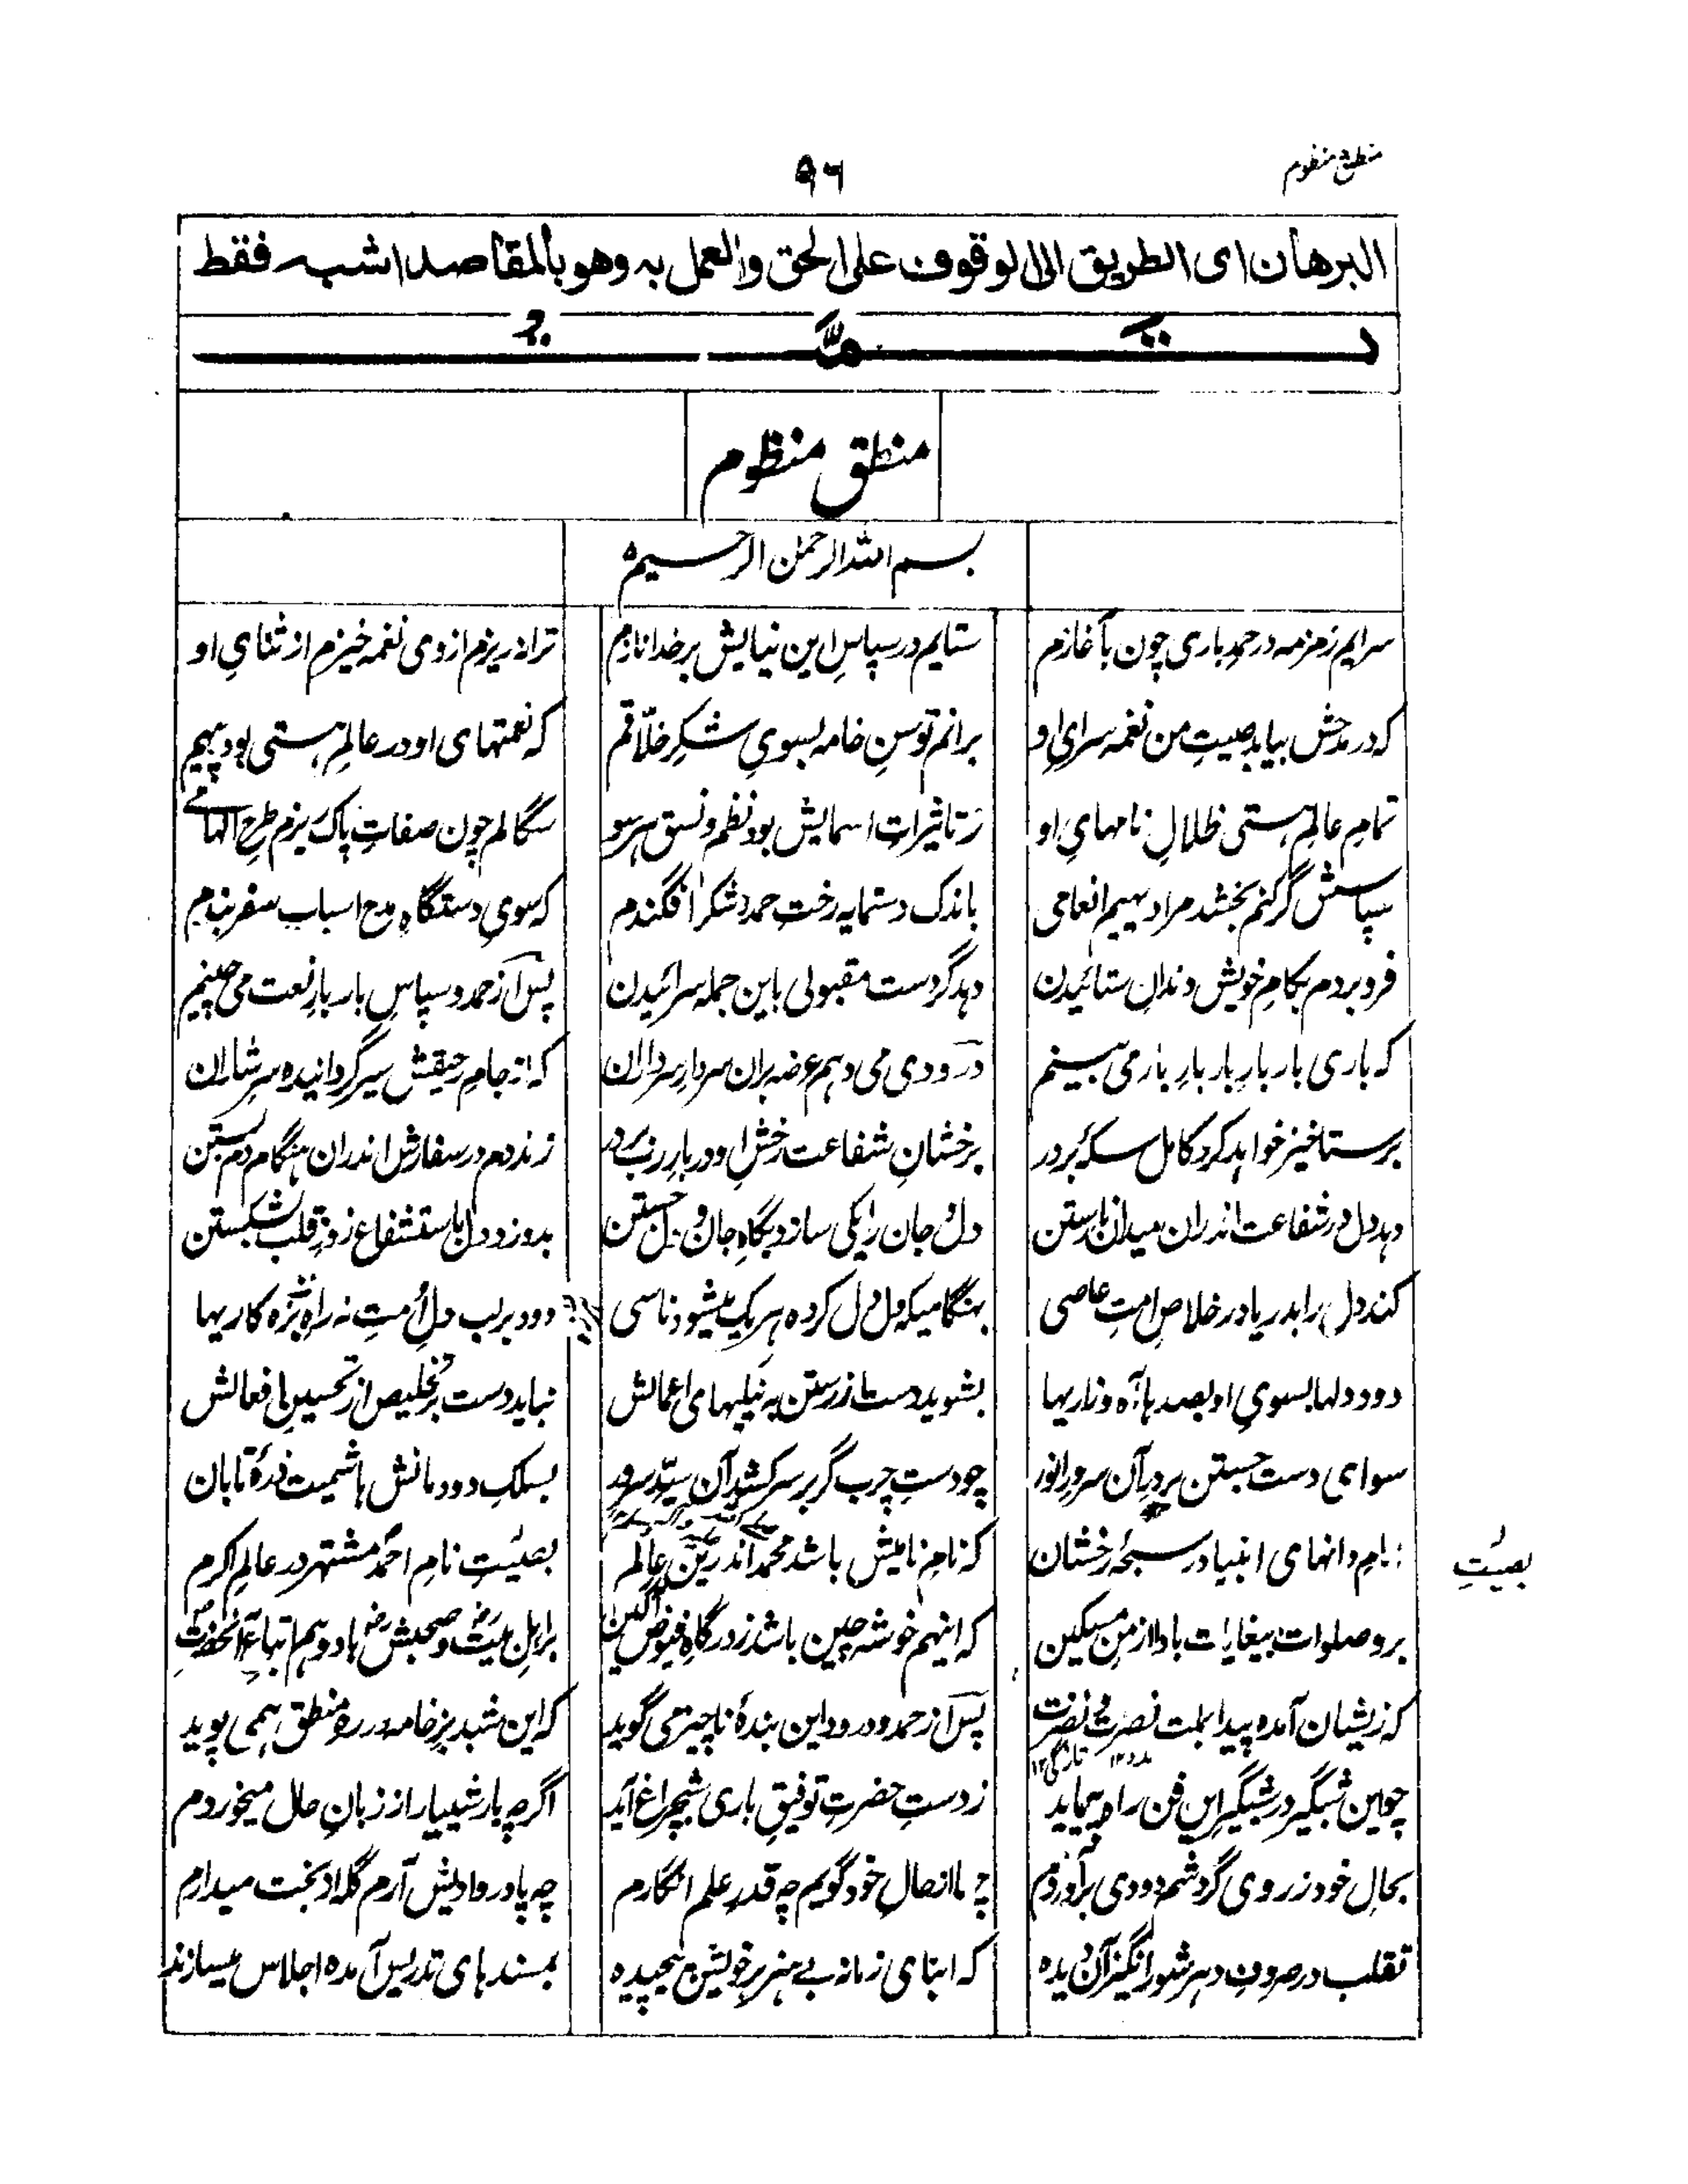 منطق منظوم
۹۶
البرهان ای الطریق الی الوقوف علی الحق والعمل به وهو بالمقاصد اشبه فقط
تمت
منطق منظوم
بسم الله الرحمن الرحیم
سرایم زمزمه در حمدِ باری چون بآغازم ستایم در سپاسِ این نیایش بر خدا نازم ترانه ریزم از وی نغمه خیزم از ثنایِ او
که در مدحش بیاید صیتِ من نغمه سرایِ او برانم توسنِ خامه بسویِ شکرِ خلّاقم که نعمتهای او در عالمِ هستی بود پیهم
تمامِ عالمِ هستی ظلالِ نامهایِ او ز تاثیراتِ اسمایش بود نظم و نسق هر سو سگالم چون صفاتِ پاک ریزم طرحِ
سپاسش گر کنم بخشد مرا دیهیم انعامی باندک دستمایه رختِ حمد و شکر افگندم که سویِ دستگاهِ مدح اسبابِ سفر بندم
فرو بردم بکامِ خویش دندانِ ستائیدن دهد گر دست مقبولی باین جمله سرائیدن پس از حمد و سپاسِ بار بارِ نعت می چینم
که باری بار بارِ بار بارِ بار می بینم درودی می دهم عرضه بران سردارِ سرداران که از جامِ رحیقش سیر گردانیده سرشاران
برستاخیز خواهد کرد کامل سکهٔ بر در برخشانِ شفاعت رخشِ او دربارِ رب زند دم در سفارش اندران هنگام دم بستن
دهد دل در شفاعت اندران میدان دل و جان را یکی سازد بگاهِ جان و دل خستن بدوزد دل باستشفاع زد قلب شکستن
کند دل را بدریا در خلاصِ امتِ عاصی بهنگامیکه دل دل کرده هر یک میشود ناسی دود بر لب دلِ امت نه راهِ بزه کاریها
دود دلها بسویِ او بصدها آه و زاریها بشوید دست از رستن به نیکیهای اعمالش نباید دست بر تخلیص از تحسینِ افعالش
سوای دست جستن بر درِ آن سرورِ انور چو دستِ چرب گر بر سر کشد آن سیّد سرور بسلکِ دودمانش هاشمیت درهٔ تابان
دانهای انبیا در سبحهٔ رخشان که نامِ نامیش باشد محمد اندرین عالم بصیتِ نامِ احمد مشتهر در عالمِ اکرم
بصیتِ
برو صلوات بیغایات بادا از منِ مسکین که اینهم خوشه چین باشد ز درگاهِ فیوض بر اهلِ بیت و صحبش باد و هم اتباعِ آنحضرت
که زیشان آمده پیدا بملت نصرت و نضرت پس از حمد و درود این بندهٔ ناچیز می گوید که این شبدیزِ خامه در رهِ منطق همی پوید
مدد ۱۲ تازگی ۱۲
چو این شبگیر در شبگیرِ این فن راه پیماید ز دستِ حضرتِ توفیقِ باری شبچراغ آید اگر چه بار بسیار از زبانِ حال میخوردم
بحالِ خود ز روی گردشم دودی برآوردم چه از حالِ خود گویم چه قدرِ علم انگارم چه پا در وادیش آرم گله از بخت میدارم
تقلب در صروفِ دهرِ شور انگیز آن دیده که ابنای زمانه بے هنر بر خویشتن پیچیده بمسندهای تدریس آمده اجلاس میسازند